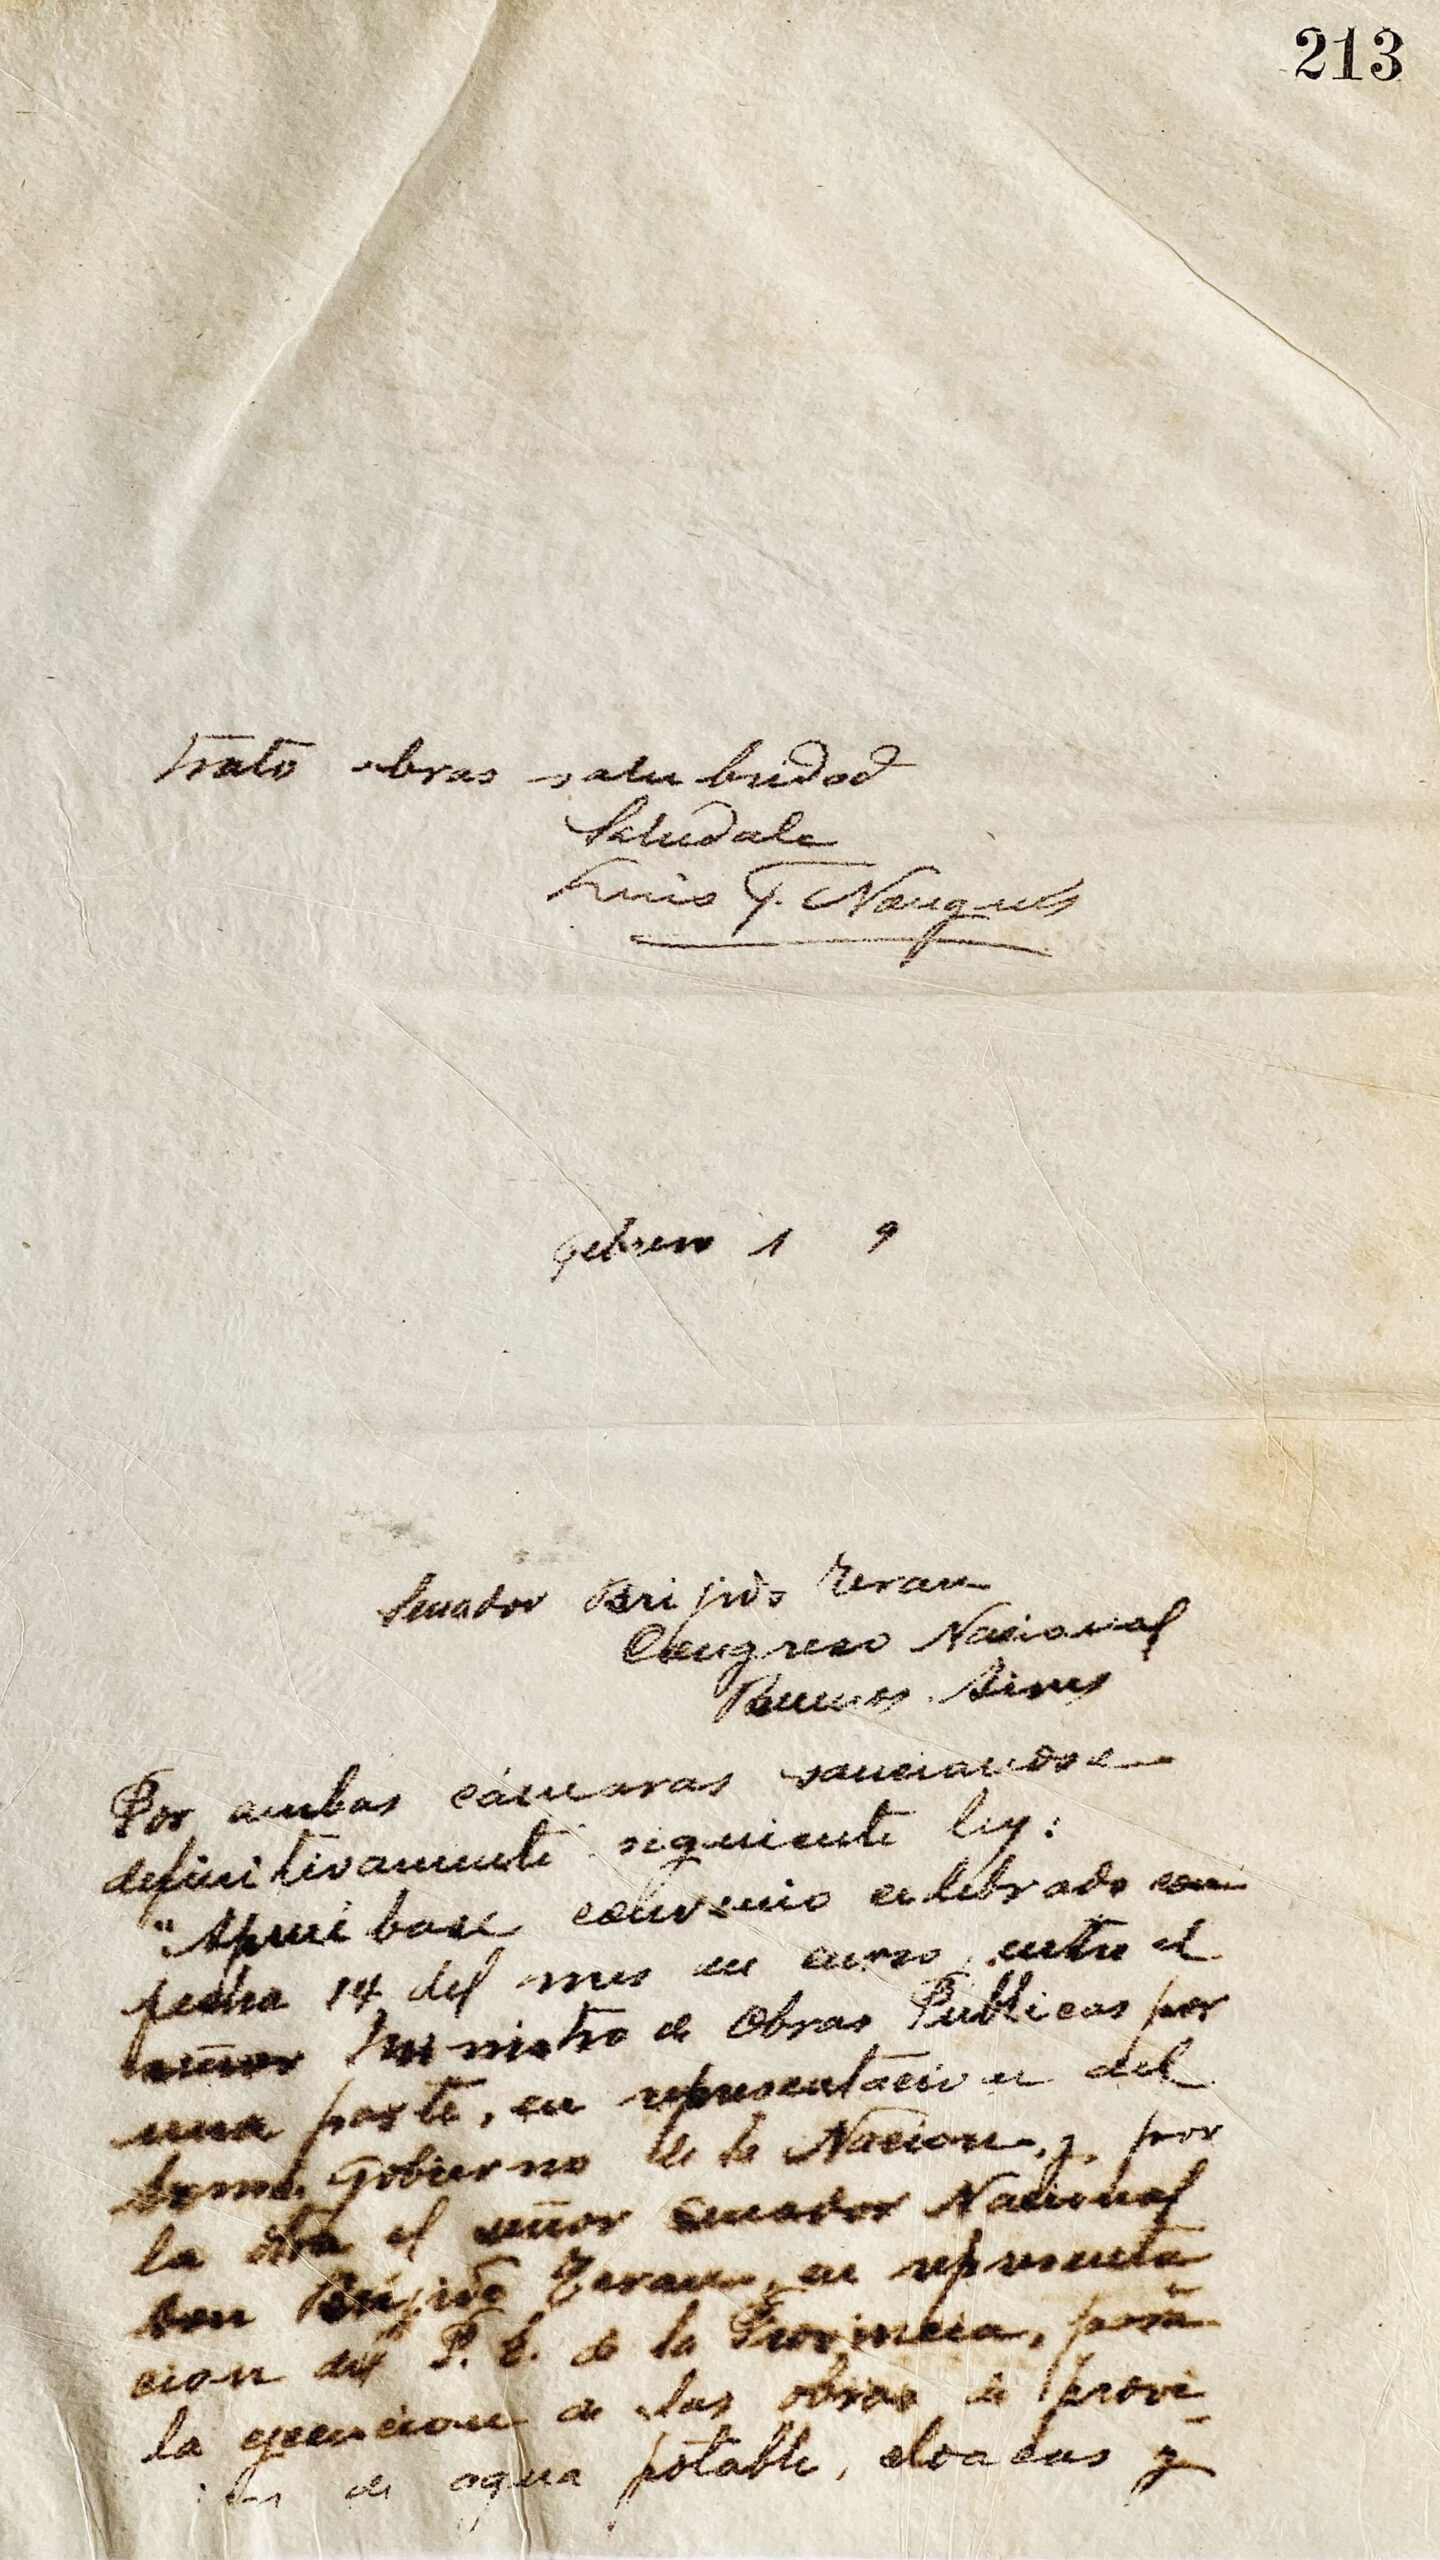 213
trato obras salubridad
Saludale
Luis F. Nougués
Febrero 1 9
Senador Brijido Teran
Congreso Nacional
Buenos Aires
Por ambas cámaras sancionóse
definitivamente siguiente ley:
"Apruébase convenio celebrado con
fecha 14 del mes en curso, entre el
señor Ministro de Obras Publicas por
una parte, en representacion del
Gobierno de la Nacion, y, por
la otra el señor Senador Nacional
don Brijido Teran, en representa
cion del P. E. de la Provincia, para
la ejecucion de las obras de provi-
de agua potable, cloacas y